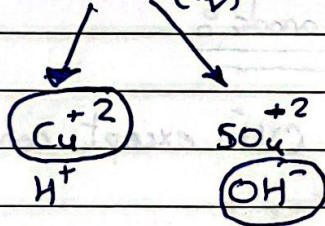 Cu⁺² SO₄⁺²
H⁺ OH⁻